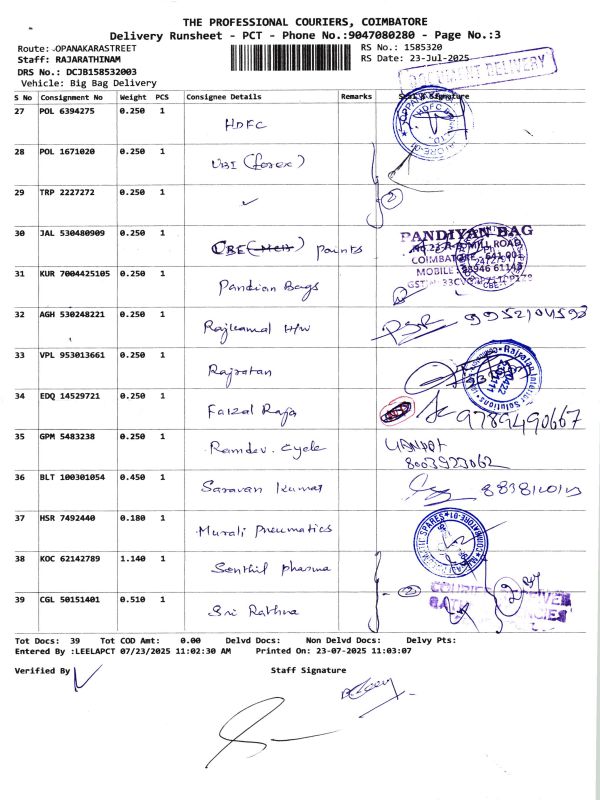 THE PROFESSIONAL COURIERS, COIMBATORE
Delivery Runsheet - PCT - Phone No.:9047080280 - Page No.:3
Route: .OPANAKARASTREET
RS No.: 1585320
Staff: RAJARATHINAM
RS Date: 23-Jul-2025
DRS No.: DCJB158532003
Vehicle: Big Bag Delivery
DOCUMENT DELIVERY
S No Consignment No Weight PCS Consignee Details Remarks Signature
27 POL 6394275 0.250 1 HDFC
28 POL 1671020 0.250 1 UBI (forex)
29 TRP 2227272 0.250 1 ✓ 2
30 JAL 530480909 0.250 1 CBE Paints
PANDIYAN BAG
MILL ROAD
COIMBATORE 641 001
MOBILE
31 KUR 7004425105 0.250 1 Pandian Bags
32 AGH 530248221 0.250 1 Rajkamal H/W
33 VPL 953013661 0.250 1 Rajratan
34 EDQ 14529721 0.250 1 Faizal Raja 9789490667
35 GPM 5483238 0.250 1 Ramdev. Cycle
8003923062
36 BLT 100301054 0.450 1 Saravan Kumar
37 HSR 7492440 0.180 1 Murali Pneumatics
38 KOC 62142789 1.140 1 Senthil Pharma
39 CGL 50151401 0.510 1 Sri Rathna 2
Tot Docs: 39 Tot COD Amt: 0.00 Delvd Docs: Non Delvd Docs: Delvy Pts:
Entered By :LEELAPCT 07/23/2025 11:02:30 AM Printed On: 23-07-2025 11:03:07
Verified By
Staff Signature